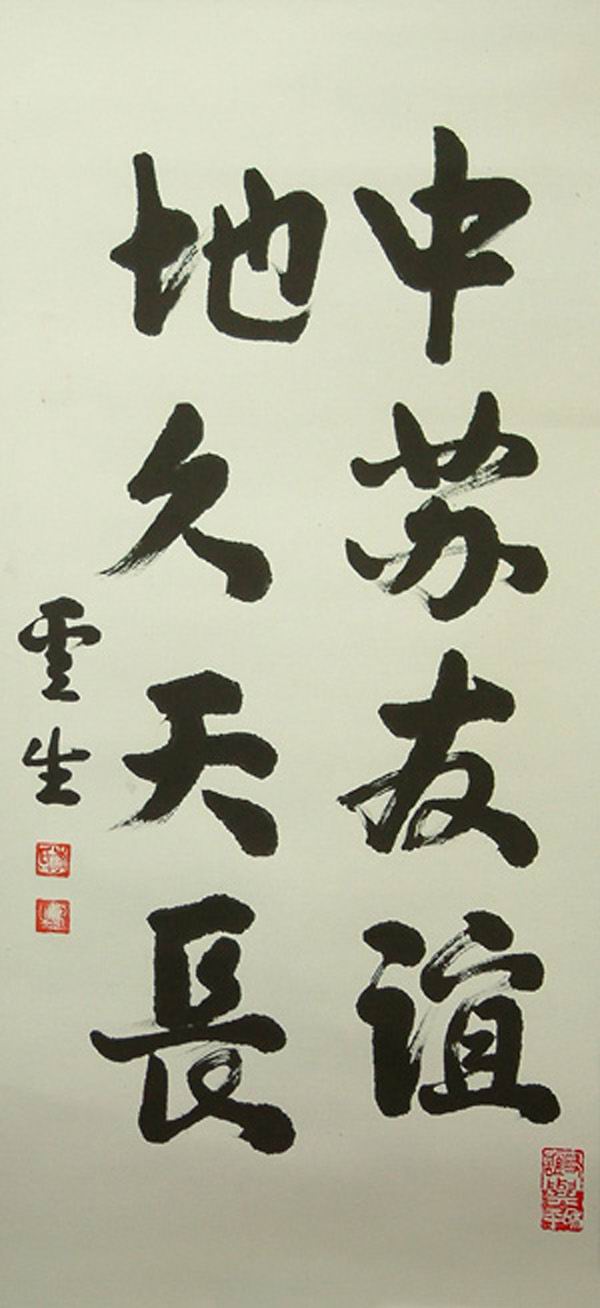 中苏友谊
地久天長
雲生